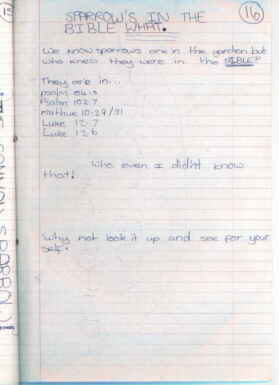 16
SPARROW'S IN THE
BIBLE WHAT.
We know sparrows are in the garden but
who knew they were in the BIBLE?
They are in...
psalm 84:3
Psalm 102:7
matthue 10:29/31
Luke 12:7
Luke 12:6
Who even I didn't know
that!
Why not look it up and see for your
self.